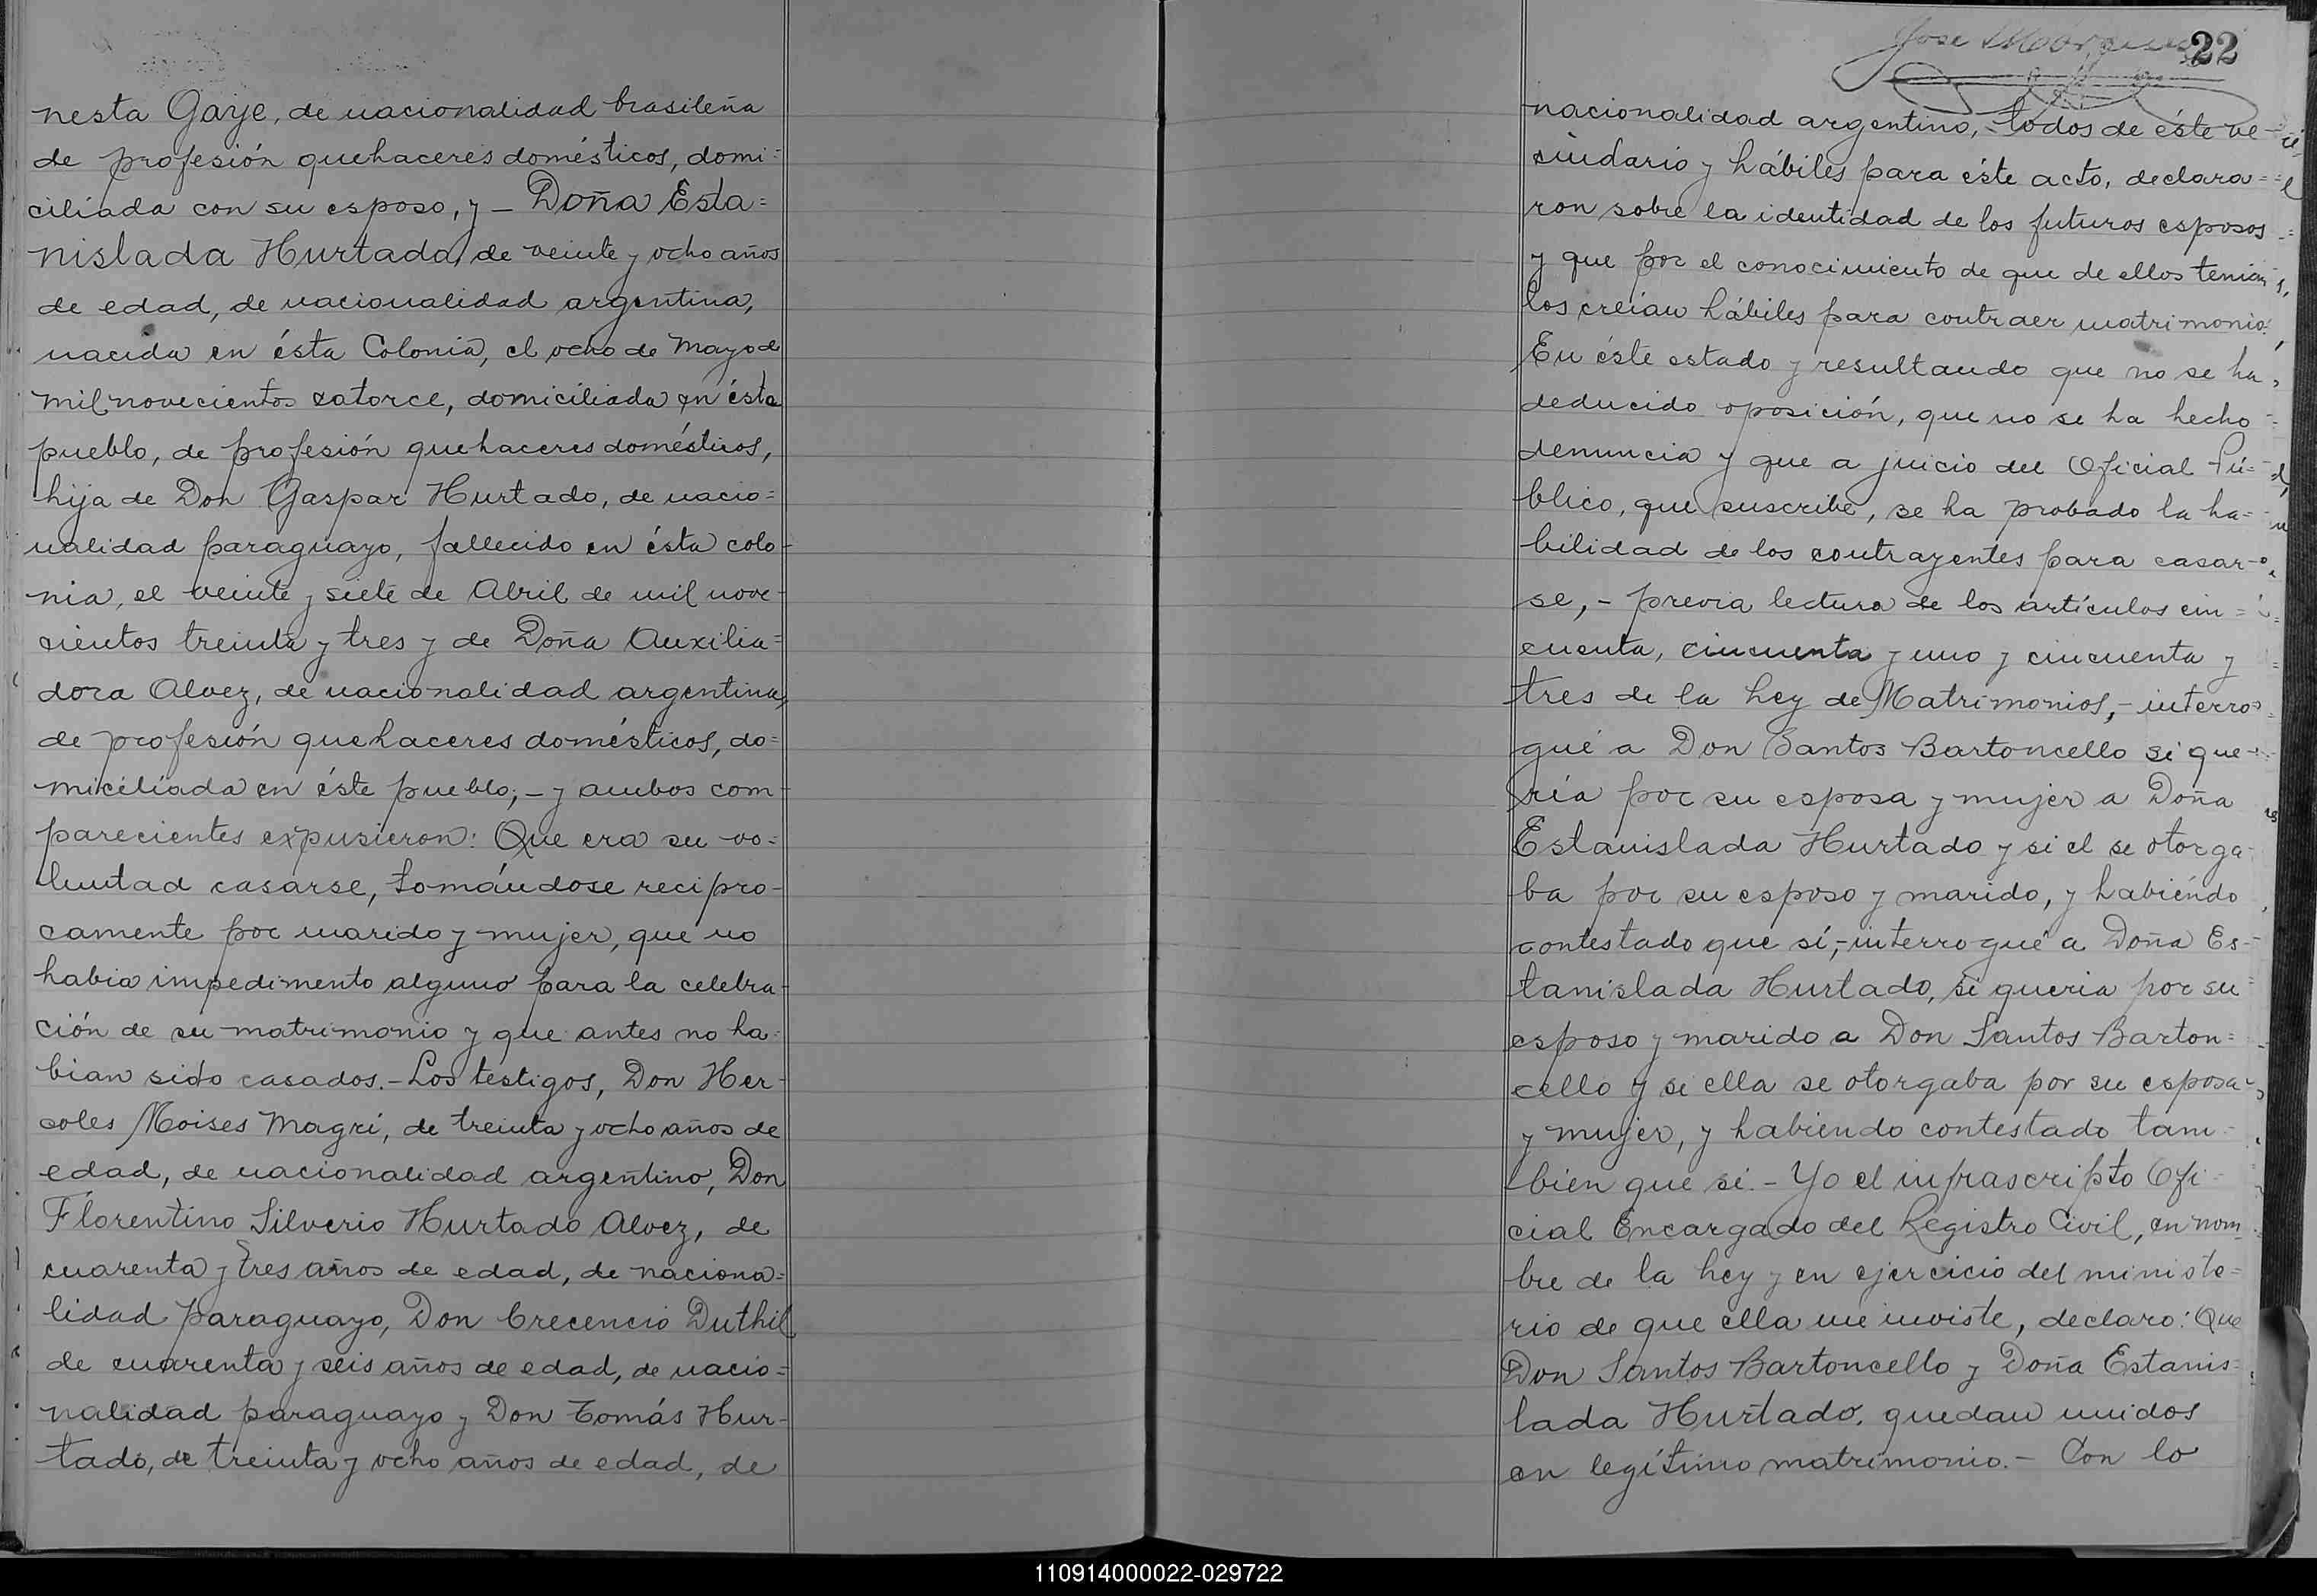 nesta Gaye, de nacionalidad brasileña
de profesión quehaceres domésticos, domi=
ciliada con su esposo, y – Doña Esta=
nislada Hurtado, de veinte y ocho años
de edad, de nacionalidad argentina,
nacida en ésta Colonia, el ocho de Mayo de
mil novecientos catorce, domiciliada en ésta
pueblo, de profesión quehaceres domésticos,
hija de Don Gaspar Hurtado, de nacio=
nalidad paraguayo, fallecido en ésta colo-
nia, el veinte y siete de Abril de mil nove-
cientos treinta y tres y de Doña Auxilia=
dora Alvez, de nacionalidad argentina,
de profesión quehaceres domésticos, do=
miciliada en éste pueblo; – y ambos com-
parecientes expusieron: Que era su vo=
luntad casarse, tomándose recipro-
camente por marido y mujer, que no
habia impedimento alguno para la celebra-
ción de su matrimonio y que antes no ha-
bian sido casados. – Los testigos, Don Her-
coles Moises Magri, de treinta y ocho años de
edad, de nacionalidad argentino, Don
Florentino Silverio Hurtado Alvez, de
cuarenta y tres años de edad, de naciona=
lidad paraguayo, Don Crecencio Duthil
de cuarenta y seis años de edad, de nacio=
nalidad paraguayo y Don Tomás Hur-
tado, de treinta y ocho años de edad, de
22
nacionalidad argentino, – todos de éste ve-
cindario y hábiles para éste acto, declara=
ron sobre la identidad de los futuros esposos
y que por el conocimiento de que de ellos tenian
los creian hábiles para contraer matrimonio.
En éste estado y resultando que no se ha
deducido oposición, que no se ha hecho
denuncia y que a juicio del Oficial Pú=
blico, que suscribe, se ha probado la ha-
bilidad de los contrayentes para casar-
se, – previa lectura de los artículos cin=
cuenta, cincuenta y uno y cincuenta y
tres de la Ley de Matrimonios, – interro-
gué a Don Santos Bartoncello si que-
ría por su esposa y mujer a Doña
Estanislada Hurtado y si el se otorga-
ba por su esposo y marido, y habiéndo
contestado que sí, – interrogué a Doña Es-
tanislada Hurtado, si queria por su
esposo y marido a Don Santos Barton=
cello y si ella se otorgaba por su esposa
y mujer, y habiendo contestado tam-
bien que si. – Yo el infrascripto Ofi-
cial Encargado del Registro Civil, en nom
bre de la Ley y en ejercicio del ministe=
rio de que ella me inviste, declaro: Que
Don Santos Bartoncello y Doña Estanis=
lada Hurtado, quedan unidos
en legítimo matrimonio. – Con lo
110914000022-029722